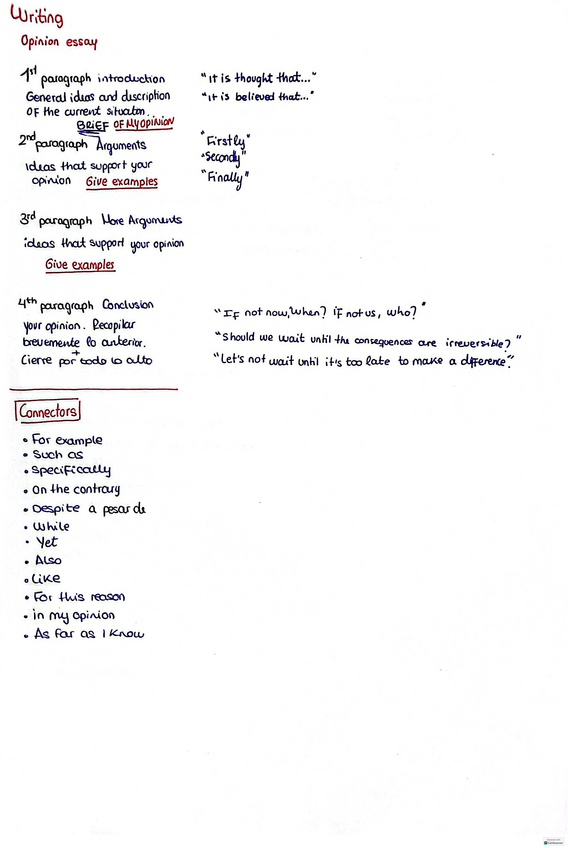 Writing
Opinion essay
1st paragraph introduction
General ideas and discription
of the current situaton.
BRIEF OF MY OPINION
"It is thought that..."
"It is believed that..."
2nd paragraph Arguments
ideas that support your
opinion Give examples
"Firstly"
"Secondly"
"Finally"
3rd paragraph More Arguments
ideas that support your opinion
Give examples
4th paragraph Conclusion
your opinion. Recopilar
brevemente lo anterior.
Cierre por todo lo alto
+
"If not now, when? if not us, who?"
"Should we wait until the consequences are irreversible?"
"Let's not wait until it's too late to make a difference."
Connectors
• For example
• Such as
• Specifically
• On the contrary
• Despite a pesar de
• While
• Yet
• Also
• Like
• For this reason
• in my opinion
• As far as I know